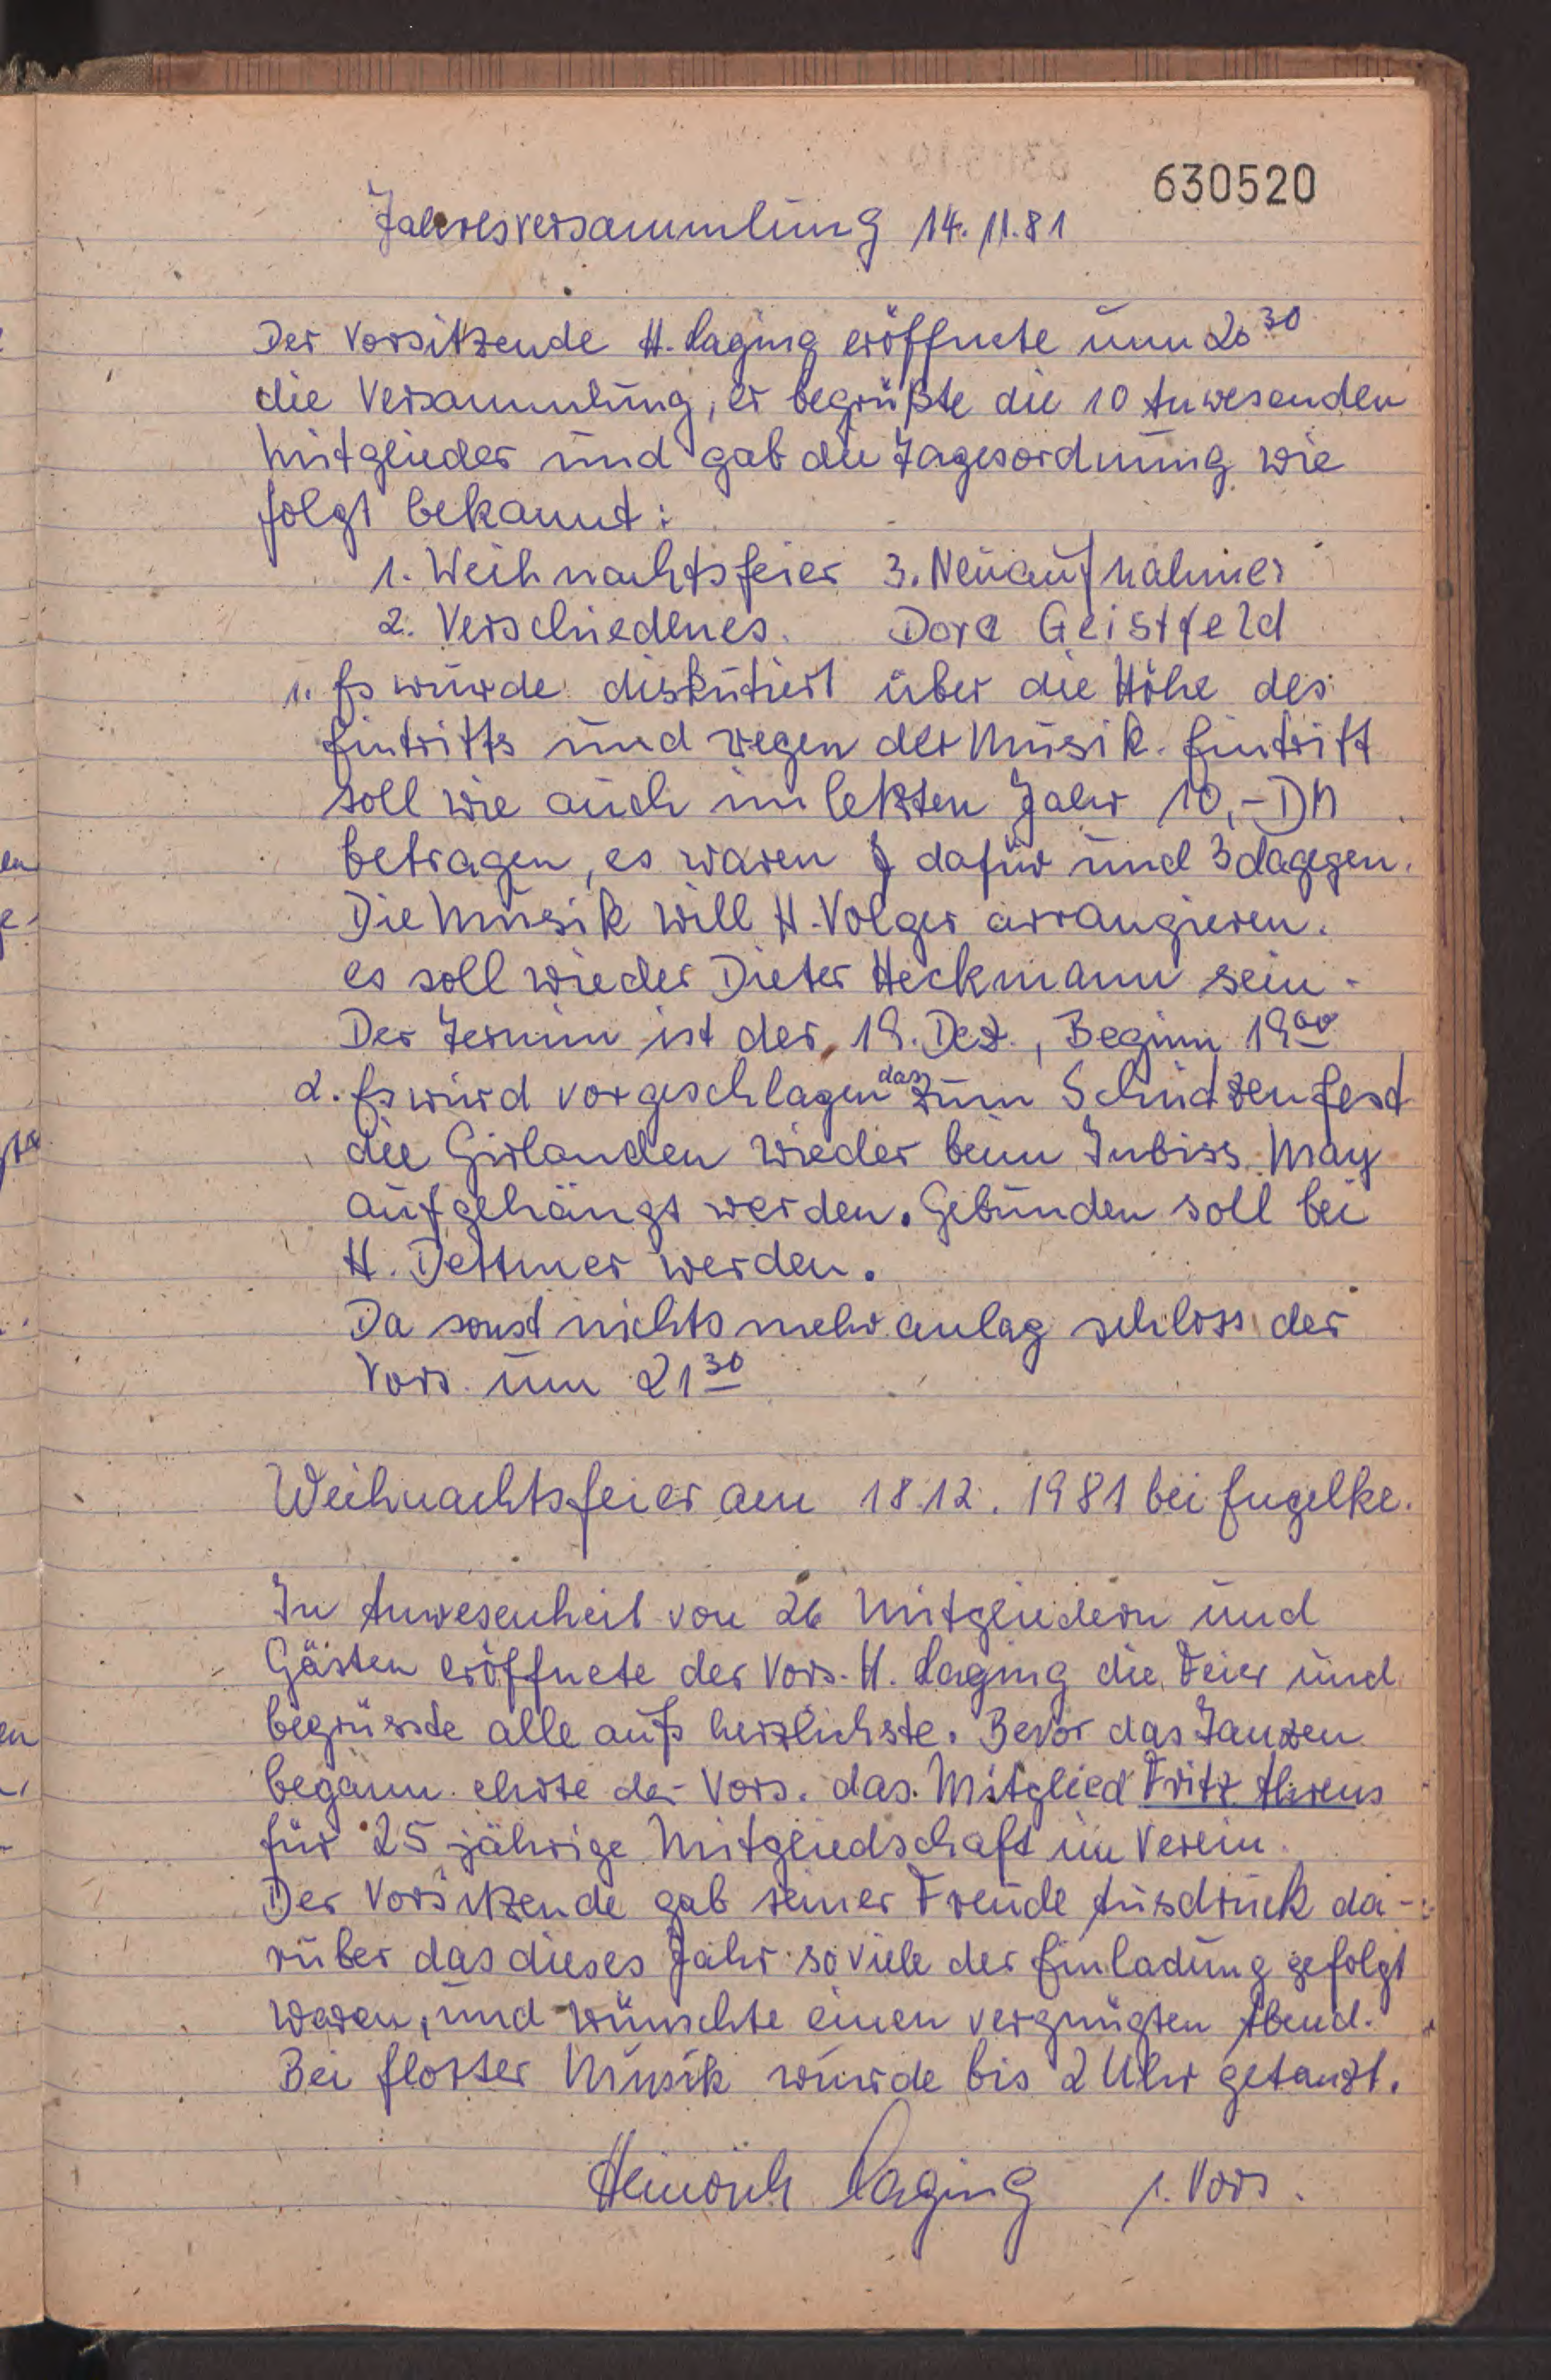 630520
Jahresversammlung 14.11.81
Der Vorsitzende H. Laging eröffnete um 20 30
die Versammlung, er begrüßte die 10 Anwesenden
Mitglieder und gab die Tagesordnung wie
folgt bekannt:
1. Weihnachtsfeier 3. Neuaufnahmer
2. Verschiedenes. Dora Geistfeld
1. Es wurde diskutiert über die Höhe des
Eintritts und wegen der Musik. Eintritt
soll wie auch im letzten Jahr 10,- DM
betragen, es waren dafür und 3 dagegen.
Die Musik will H. Volger arrangieren.
es soll wieder Dieter Heckmann sein.
Der Termin ist der 19. Dez., Beginn 19 00
2. Es wird vorgeschlagen das zum Schützenfest
die Girlanden wieder beim Imbiss May
aufgehängt werden. Gebunden soll bei
H. Dettmer werden.
Da sonst nichts mehr anlag schloss der
Vors. um 21 30
Weihnachtsfeier am 18.12. 1981 bei Engelke.
In Anwesenheit von 26 Mitgliedern und
Gästen eröffnete der Vors. H. Laging die Feier und
begrüsste alle aufs herzlichste. Bevor das Tanzen
begann ehrte der Vors. das Mitglied Fritz Ahrens
für 25 jährige Mitgliedschaft im Verein.
Der Vorsitzende gab seiner Freude Ausdruck da-
rüber das dieses Jahr so viele der Einladung gefolgt
waren, und wünschte einen vergnügten Abend.
Bei flotter Musik wurde bis 2 Uhr getanzt.
Heinrich Laging 1. Vors.